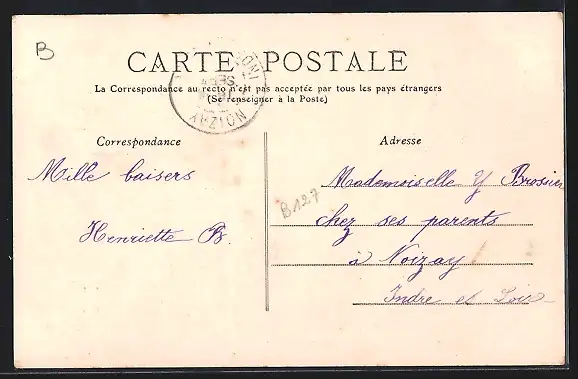 B
CARTE POSTALE
La Correspondance au recto n'est pas acceptée par tous les pays étrangers
(Se renseigner à la Poste)
NOIZAY
Correspondance
Mille baisers
Henriette B.
B127
Adresse
Mademoiselle Y Brossier
chez ses parents
à Noizay
Indre et Loire